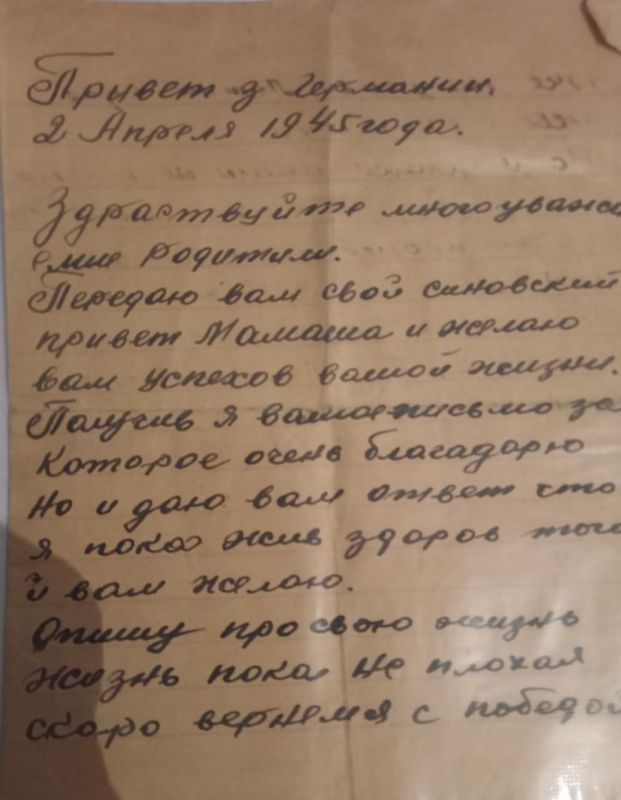 Привет з Германии.
2 Апреля 1945 года.
Здраствуйте многоуважа
емие Родители.
Передаю вам свой синовский
привет Мамаша и желаю
вам успехов вашой жизни.
Палучив я вашое письмо за
Которое очень благадарю
но и даю вам ответ что
я пока жив здоров того
и вам желаю.
Опишу про свою жизнь
жизнь пока не плохая
скоро вернемя с победой